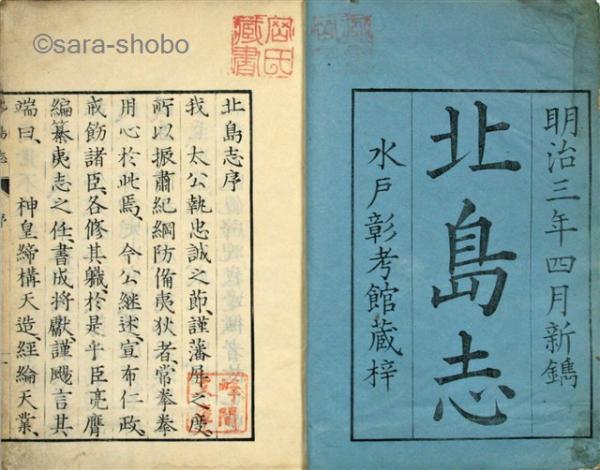 ©sara-shobo
明治三年四月新鐫
北島志
水戸彰考館蔵梓
北島志序
我 太公執忠誠之節、謹藩屏之度、
所以振肅紀綱防備夷狄者、常拳拳
用心於此焉、今公継述、宣布仁政、
戒飭諸臣、各修其職、於是乎臣亮膺
編纂夷志之任、書成将獻、謹颺言其
端曰、 神皇締構天造、經綸天業、
藏書